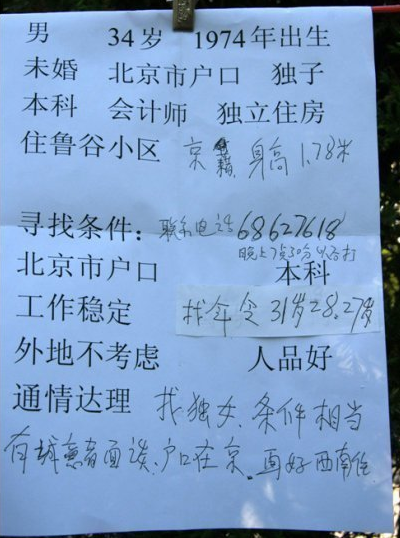 男 34岁 1974年出生
未婚 北京市户口 独子
本科 会计师 独立住房
住鲁谷小区 京籍 身高1.78米
寻找条件: 联系电话68627618
晚上7点30分以后打
北京市户口 本科
工作稳定 找年令31岁28,27岁
外地不考虑 人品好
通情达理 找独女、条件相当
有诚意者面谈、户口在京